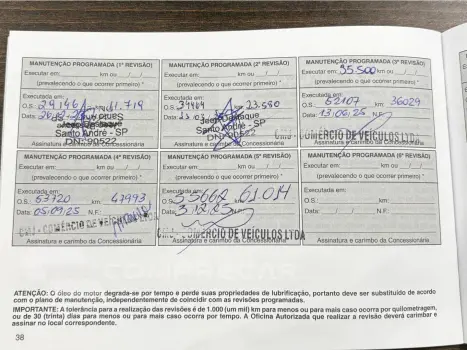 MANUTENÇÃO PROGRAMADA (1ª REVISÃO)
Executar em: km ou / /
(prevalecendo o que ocorrer primeiro) *
Executada em:
O.S.: 29146 km: 11.719
Data:
Jeep Destaque
Santo André - SP
Assinatura e carimbo da Concessionária
MANUTENÇÃO PROGRAMADA (2ª REVISÃO)
Executar em: km ou / /
(prevalecendo o que ocorrer primeiro) *
Executada em:
O.S.: 34984 23.580
Data:
Jeep Destaque
Santo André - SP
MANUTENÇÃO PROGRAMADA (3ª REVISÃO)
Executar em: 35.500 km ou / /
(prevalecendo o que ocorrer primeiro) *
Executada em:
O.S.: 52107 km: 36029
Data: 13.06.25 N.F.:
COMÉRCIO DE VEÍCULOS LTDA
Assinatura e carimbo da Concessionária
MANUTENÇÃO PROGRAMADA (4ª REVISÃO)
Executar em: km ou / /
(prevalecendo o que ocorrer primeiro) *
Executada em:
O.S.: 53720 km: 47993
Data: 05.09.25 N.F.:
COMÉRCIO DE VEÍCULOS
Assinatura e carimbo da Concessionária
MANUTENÇÃO PROGRAMADA (5ª REVISÃO)
Executar em: km ou / /
(prevalecendo o que ocorrer primeiro) *
Executada em:
O.S.: 55662 61.014
Data: 3.12.25 N.F.:
COMÉRCIO DE VEÍCULOS LTDA
Assinatura e carimbo da Concessionária
MANUTENÇÃO PROGRAMADA (6ª REVISÃO)
Executar em: km ou / /
(prevalecendo o que ocorrer primeiro) *
Executada em:
O.S.: km:
Data: / / N.F.:
Assinatura e carimbo da Concessionária
ATENÇÃO: O óleo do motor degrada-se por tempo e perde suas propriedades de lubrificação, portanto deve ser substituído de acordo
com o plano de manutenção, independentemente de coincidir com as revisões programadas.
IMPORTANTE: A tolerância para a realização das revisões é de 1.000 (um mil) km para menos ou para mais caso ocorra por quilometragem,
ou de 30 (trinta) dias para menos ou para mais caso ocorra por tempo. A Oficina Autorizada que realizar a revisão deverá carimbar e
assinar no local correspondente.
38